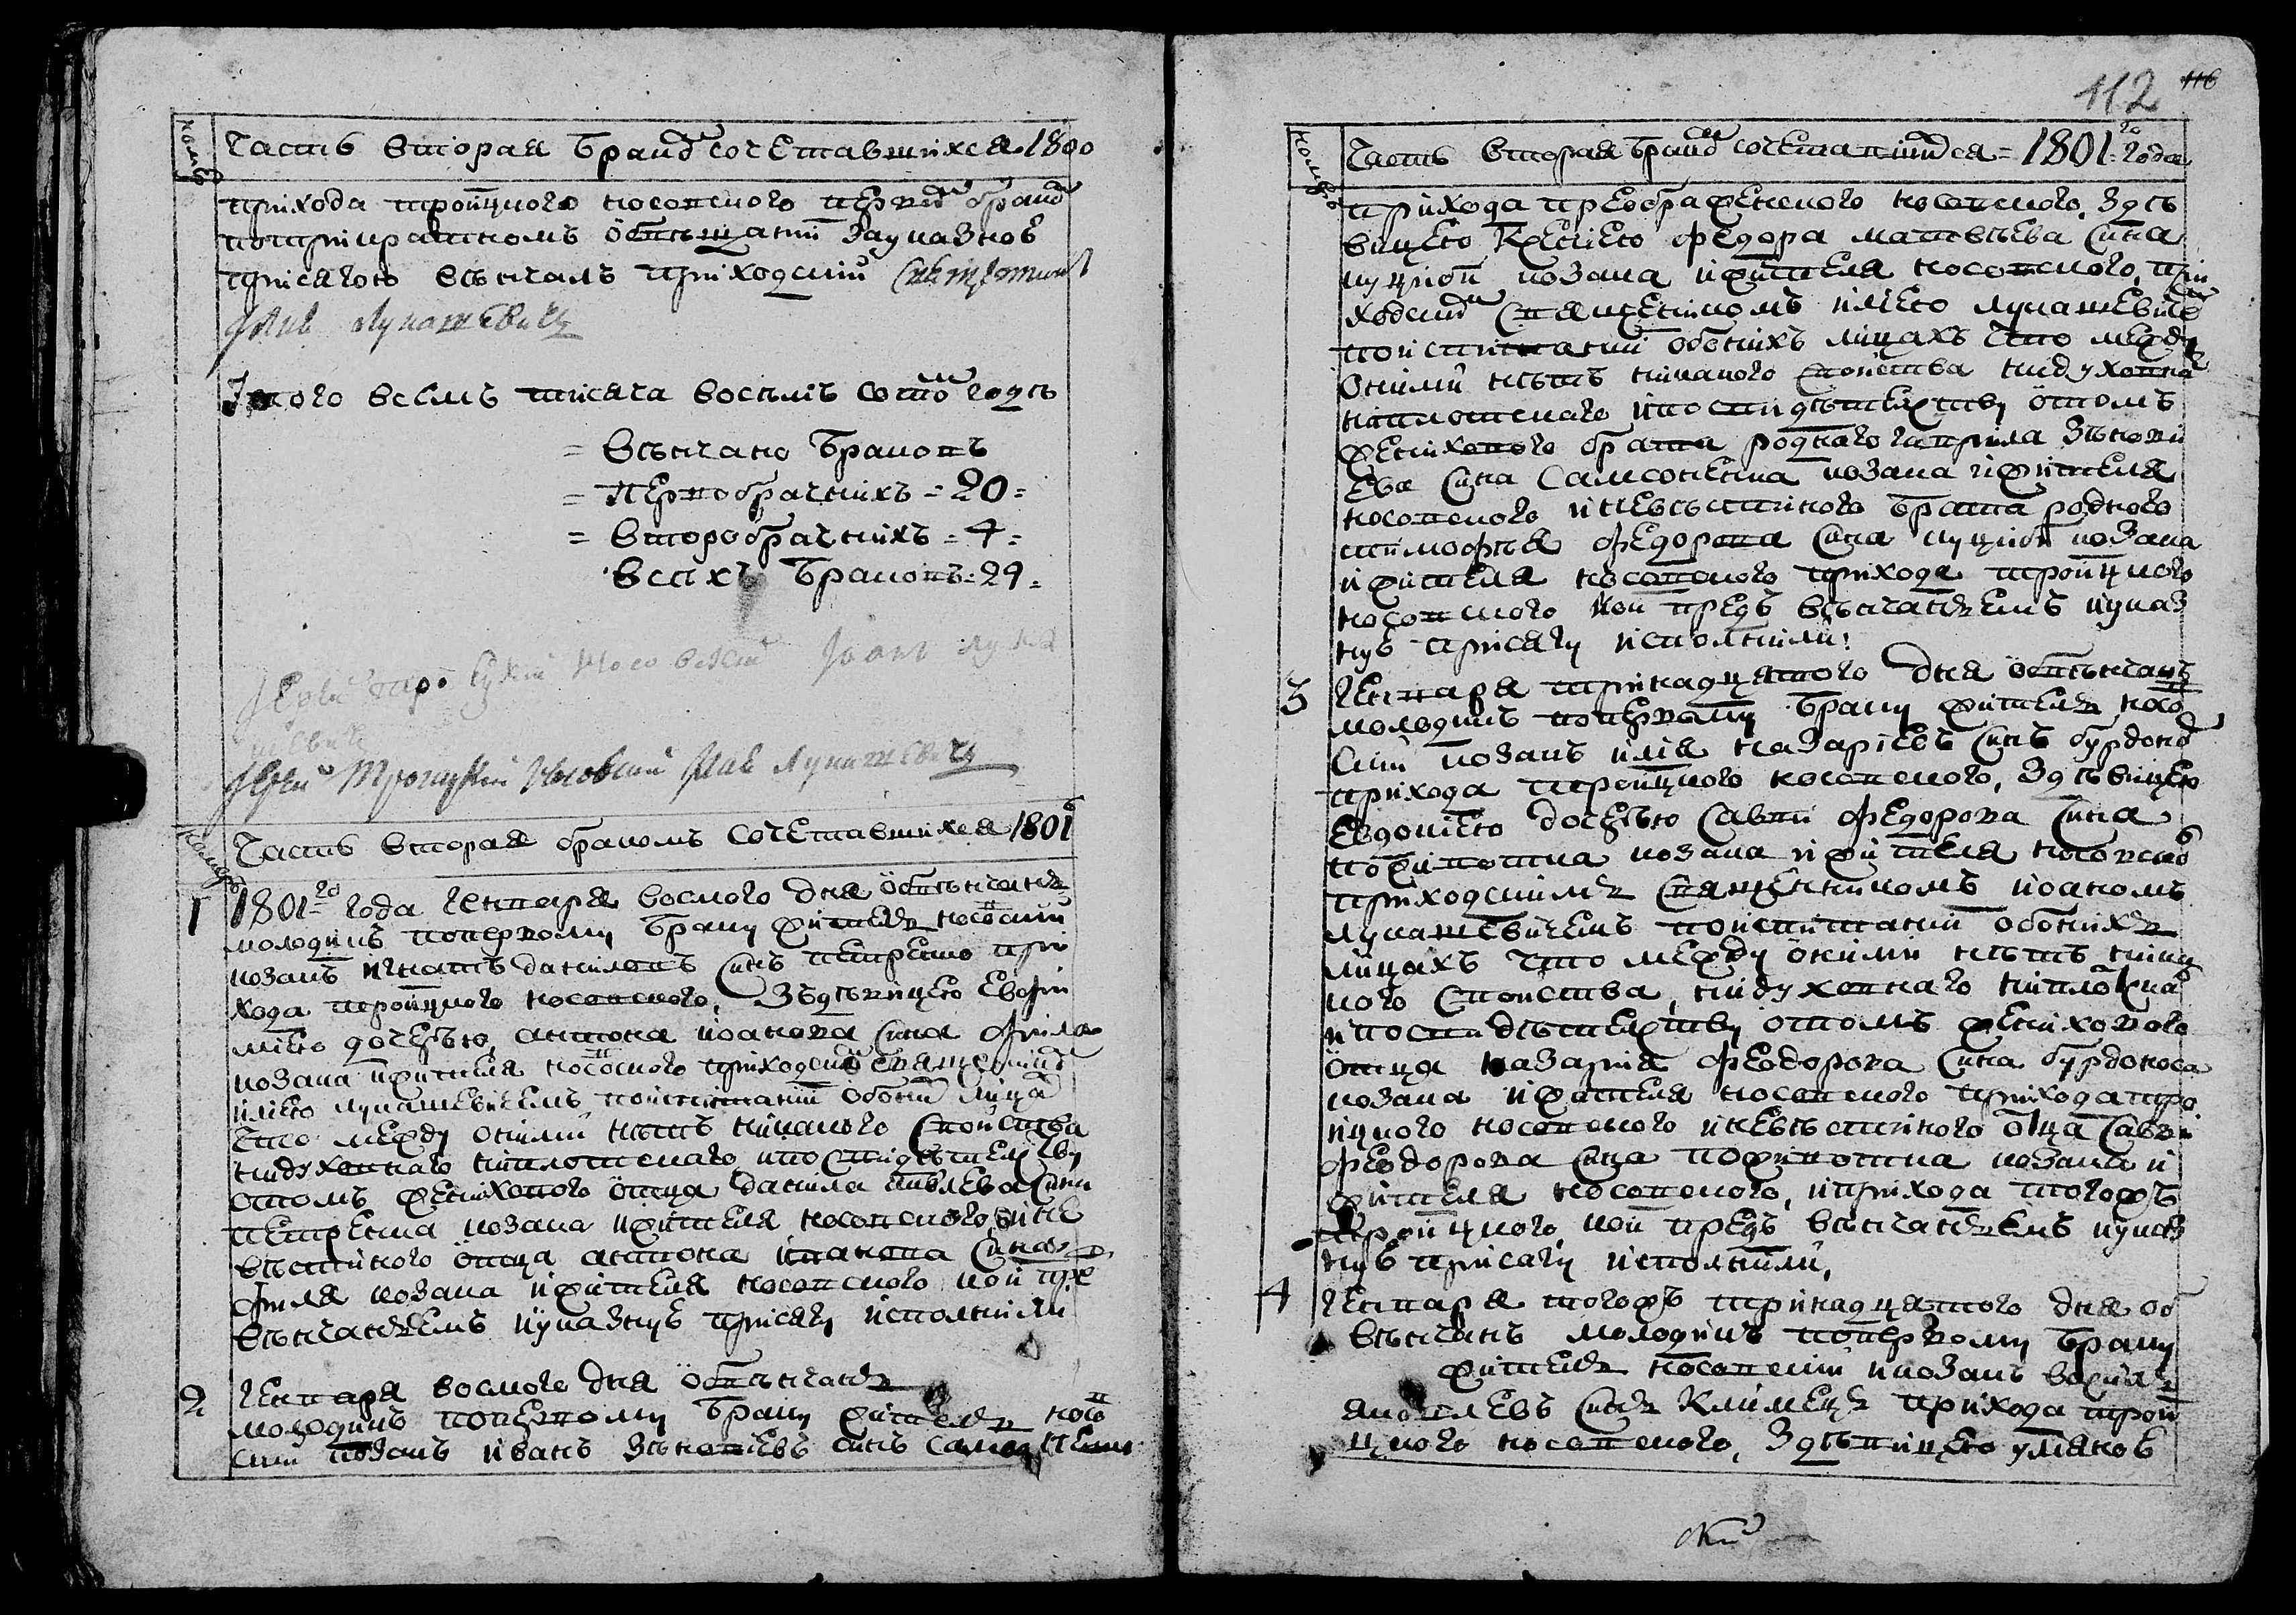 номѣръ
Часть вторая бракомъ сочетавшихся 1800
прихода троицкого носовского первимъ бракомъ
потрикратномъ обвѣщании зауказное
присягою вѣнчалъ приходский священникъ
Іоанъ Лукашевичъ
Итого всемъ тисяча восѣмъ сотомъ годѣ
= вѣнчано браковъ
= первобрачнихъ = 20 =
= второбрачнихъ = 4 =
всѣхъ браковъ = 24 =
Іерей Троицкий Носовский Іоанъ Лука
шевичъ
Іерей Троицкий Носовский Іоанъ Лукашевичъ
номѣръ
Часть вторая бракомъ сочетавшихся 1801
1 1801-го года генваря восмого дня обвѣнчанъ
молодикъ попервому браку житель носовский
козакъ игнатъ даниловъ синъ петренко при
хода троицкого носовского, здѣвицею евфи
миею дочерью антона иоанова сина фриля
козака ижителя носовского приходскимъ священником
илиею лукашевичемъ поиспитании обоихъ лицахъ
что между оними нѣтъ никакого свойства
нидуховнаго ниплотскаго, ипосвидѣтелству
отомъ женихового отца данила сина
петренка козака ижителя носовского, ине
вѣстиного отца антона иванова сина
фриля козака ижителя носовского кои пре
вѣнчаниемъ иуказную присягу исполнили
2 генваря восмого дня обвѣнчанъ
молодикъ попервому браку житель носов
ский козакъ иванъ зѣновиевъ синъ самсоненко
112 116
номѣръ
Часть вторая бракомъ сочетавшихся = 1801-го года
прихода преображенского носовского, здѣ
вицею ксениею федора матвѣева сина
куцкои козака ижителя носовского, при
ходскимъ священникомъ илиею лукашевичемъ
поиспитании обоихъ лицахъ что между
оними нѣтъ никакого свойства нидуховна
ниплотскаго ипосвидѣтелству отомъ
жениховаго брата роднаго гаврила зѣнови
ева сина самсоненка козака ижителя
носовского иневѣстиного брата родного
тимофея федорова сина куцкои козака
ижителя носовского прихода троицкого
носовского кои предъ вѣнчаниемъ иуказ
ную присягу исполнили:
3 генваря тринадцятого дня обвѣнчанъ
молодикъ попервому браку житель носов
ский козакъ илия назариевъ синъ бурдоносъ
прихода троицкого носовского, здѣвицею
евдокиею дочерью савви федорова сина
козака ижителя носовского
приходскимъ священникомъ иоаномъ
лукашевичемъ поиспитании обоихъ
лицахъ что между оними нѣтъ ника
кого свойства, нидуховнаго ниплотскаго
ипосвидѣтелству отомъ женихового
отца назария феодорова сина бурдоноса
козака ижителя носовского прихода тро
ицкого носовского иневѣстиного отца савви
феодорова сина козака и
жителя носовского, иприхода тогожъ
троицкого, кои предъ вѣнчаниемъ иуказ
ную присягу исполнили,
4 генваря тогожъ тринадцятого дня об
вѣнчанъ молодикъ попервому браку
житель носовский козакъ
яковлевъ синъ климецъ прихода трои
цкого носовского, здѣвицею улияною